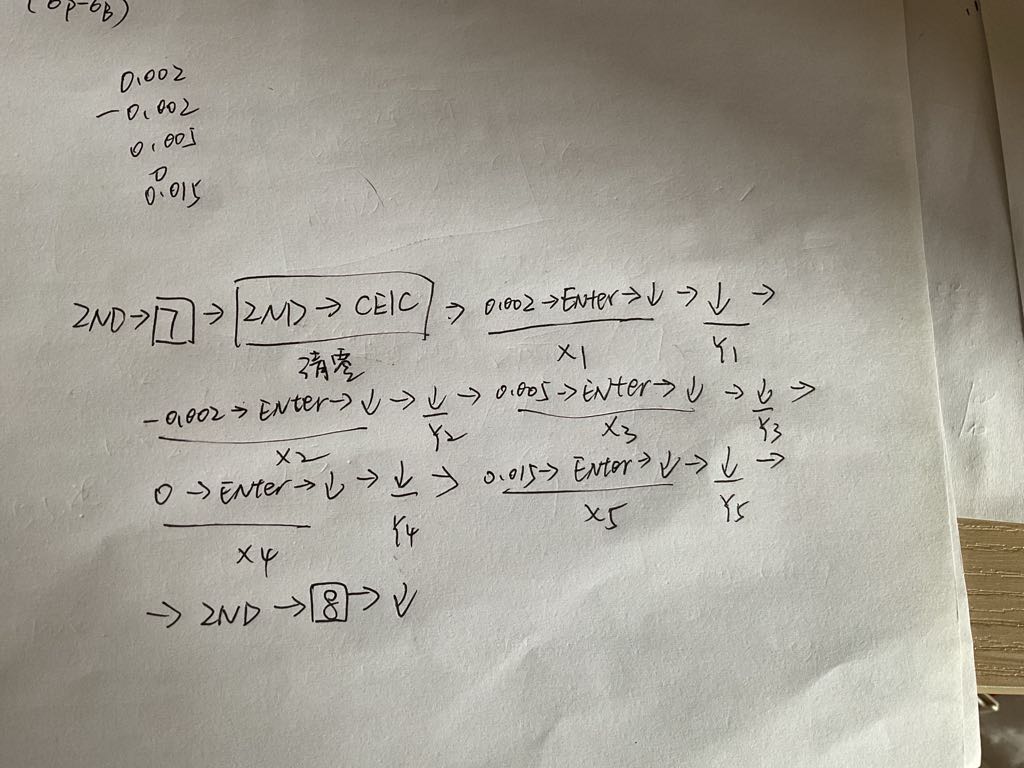 (σp-σB)
0.002
-0.002
0.005
0
0.015
2ND → 7 → 2ND → CE|C → 0.002 → Enter → ↓ → ↓ →
清零 X1 Y1
-0.002 → ENter → ↓ → ↓ → 0.005 → ENter → ↓ → ↓ →
X2 Y2 X3 Y3
0 → ENter → ↓ → ↓ → 0.015 → ENter → ↓ → ↓ →
X4 Y4 X5 Y5
→ 2ND → 8 → ↓